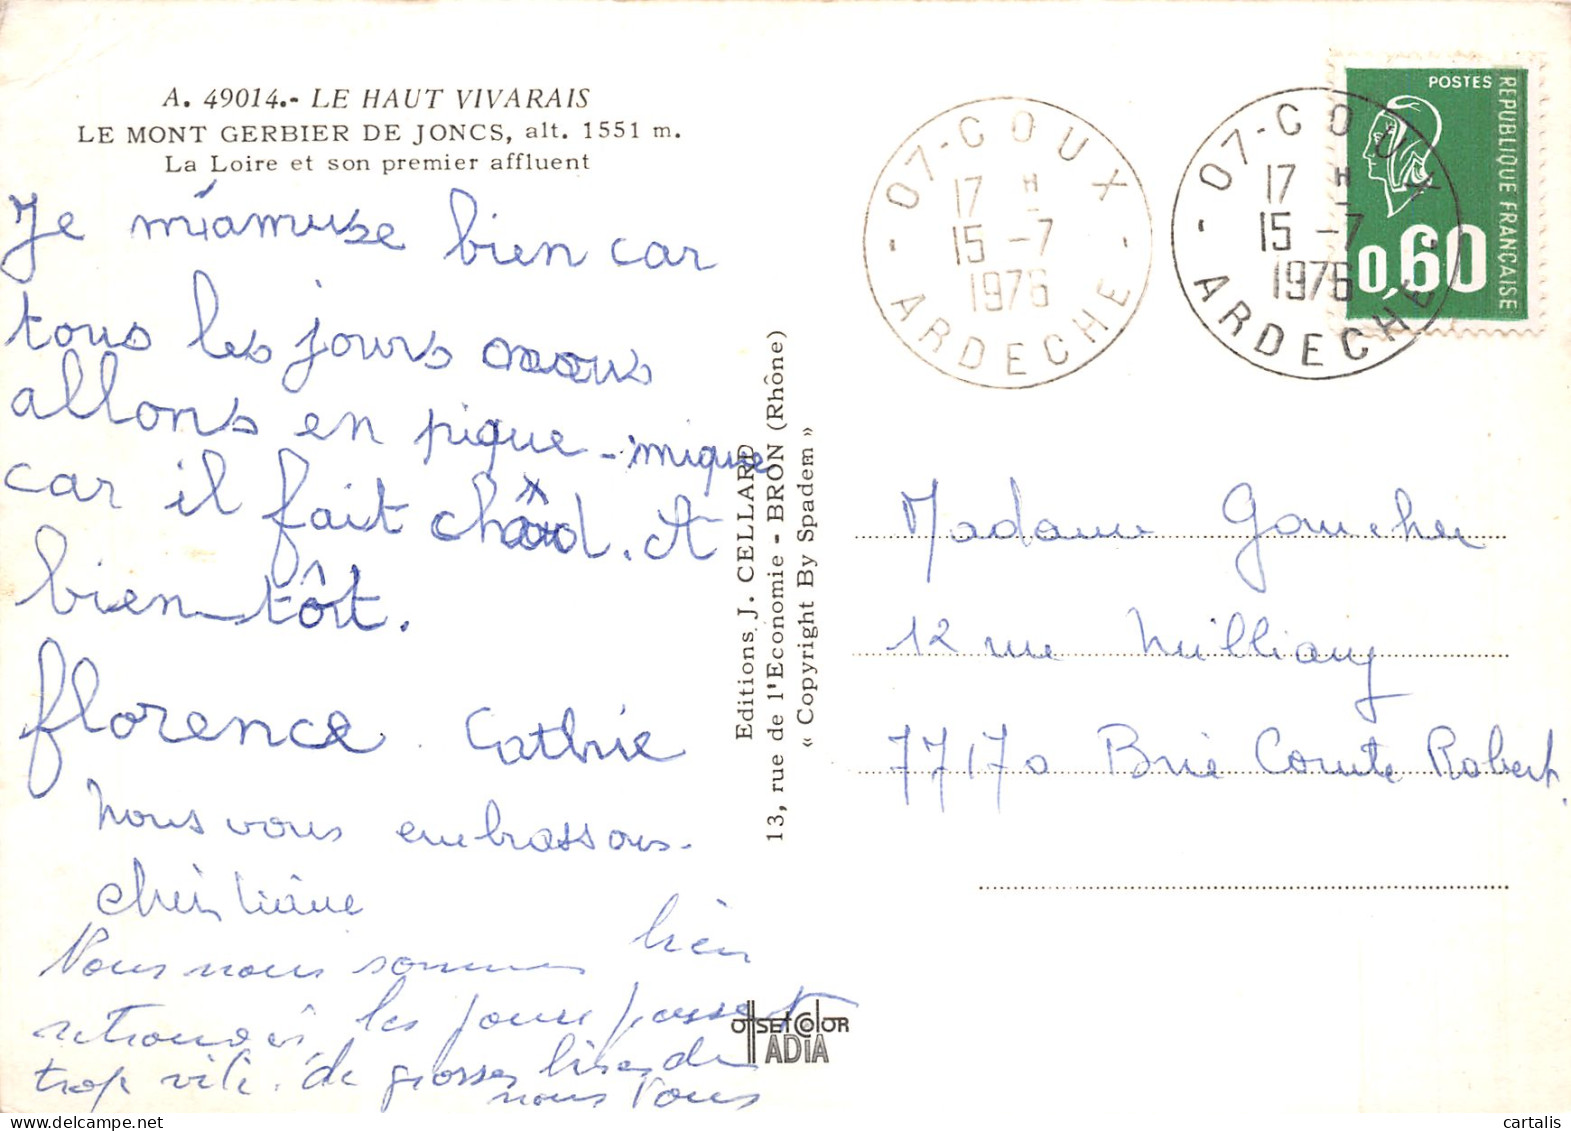 A. 49014.- LE HAUT VIVARAIS
LE MONT GERBIER DE JONCS, alt. 1551 m.
La Loire et son premier affluent
Je m'amuse bien car
tous les jours nous
allons en pique-nique
car il fait chaud. A
bientôt.
florence. Cathie
Nous vous embrassons.
Christiane
Nous nous sommes bien
retrouvés les jours passent
trop vite. de grosses bises de
nous tous
Editions J. CELLARD
13, rue de l'Economie - BRON (Rhône)
« Copyright By Spadem »
OFFSET COLOR
ADIA
07-COUX
17 H
15-7
1976
ARDECHE
07-COUX
17 H
15-7
1976
ARDECHE
POSTES
REPUBLIQUE FRANÇAISE
0,60
Madame Gaucher
12 rue Milliany
77170 Brie Comte Robert.
cartalis